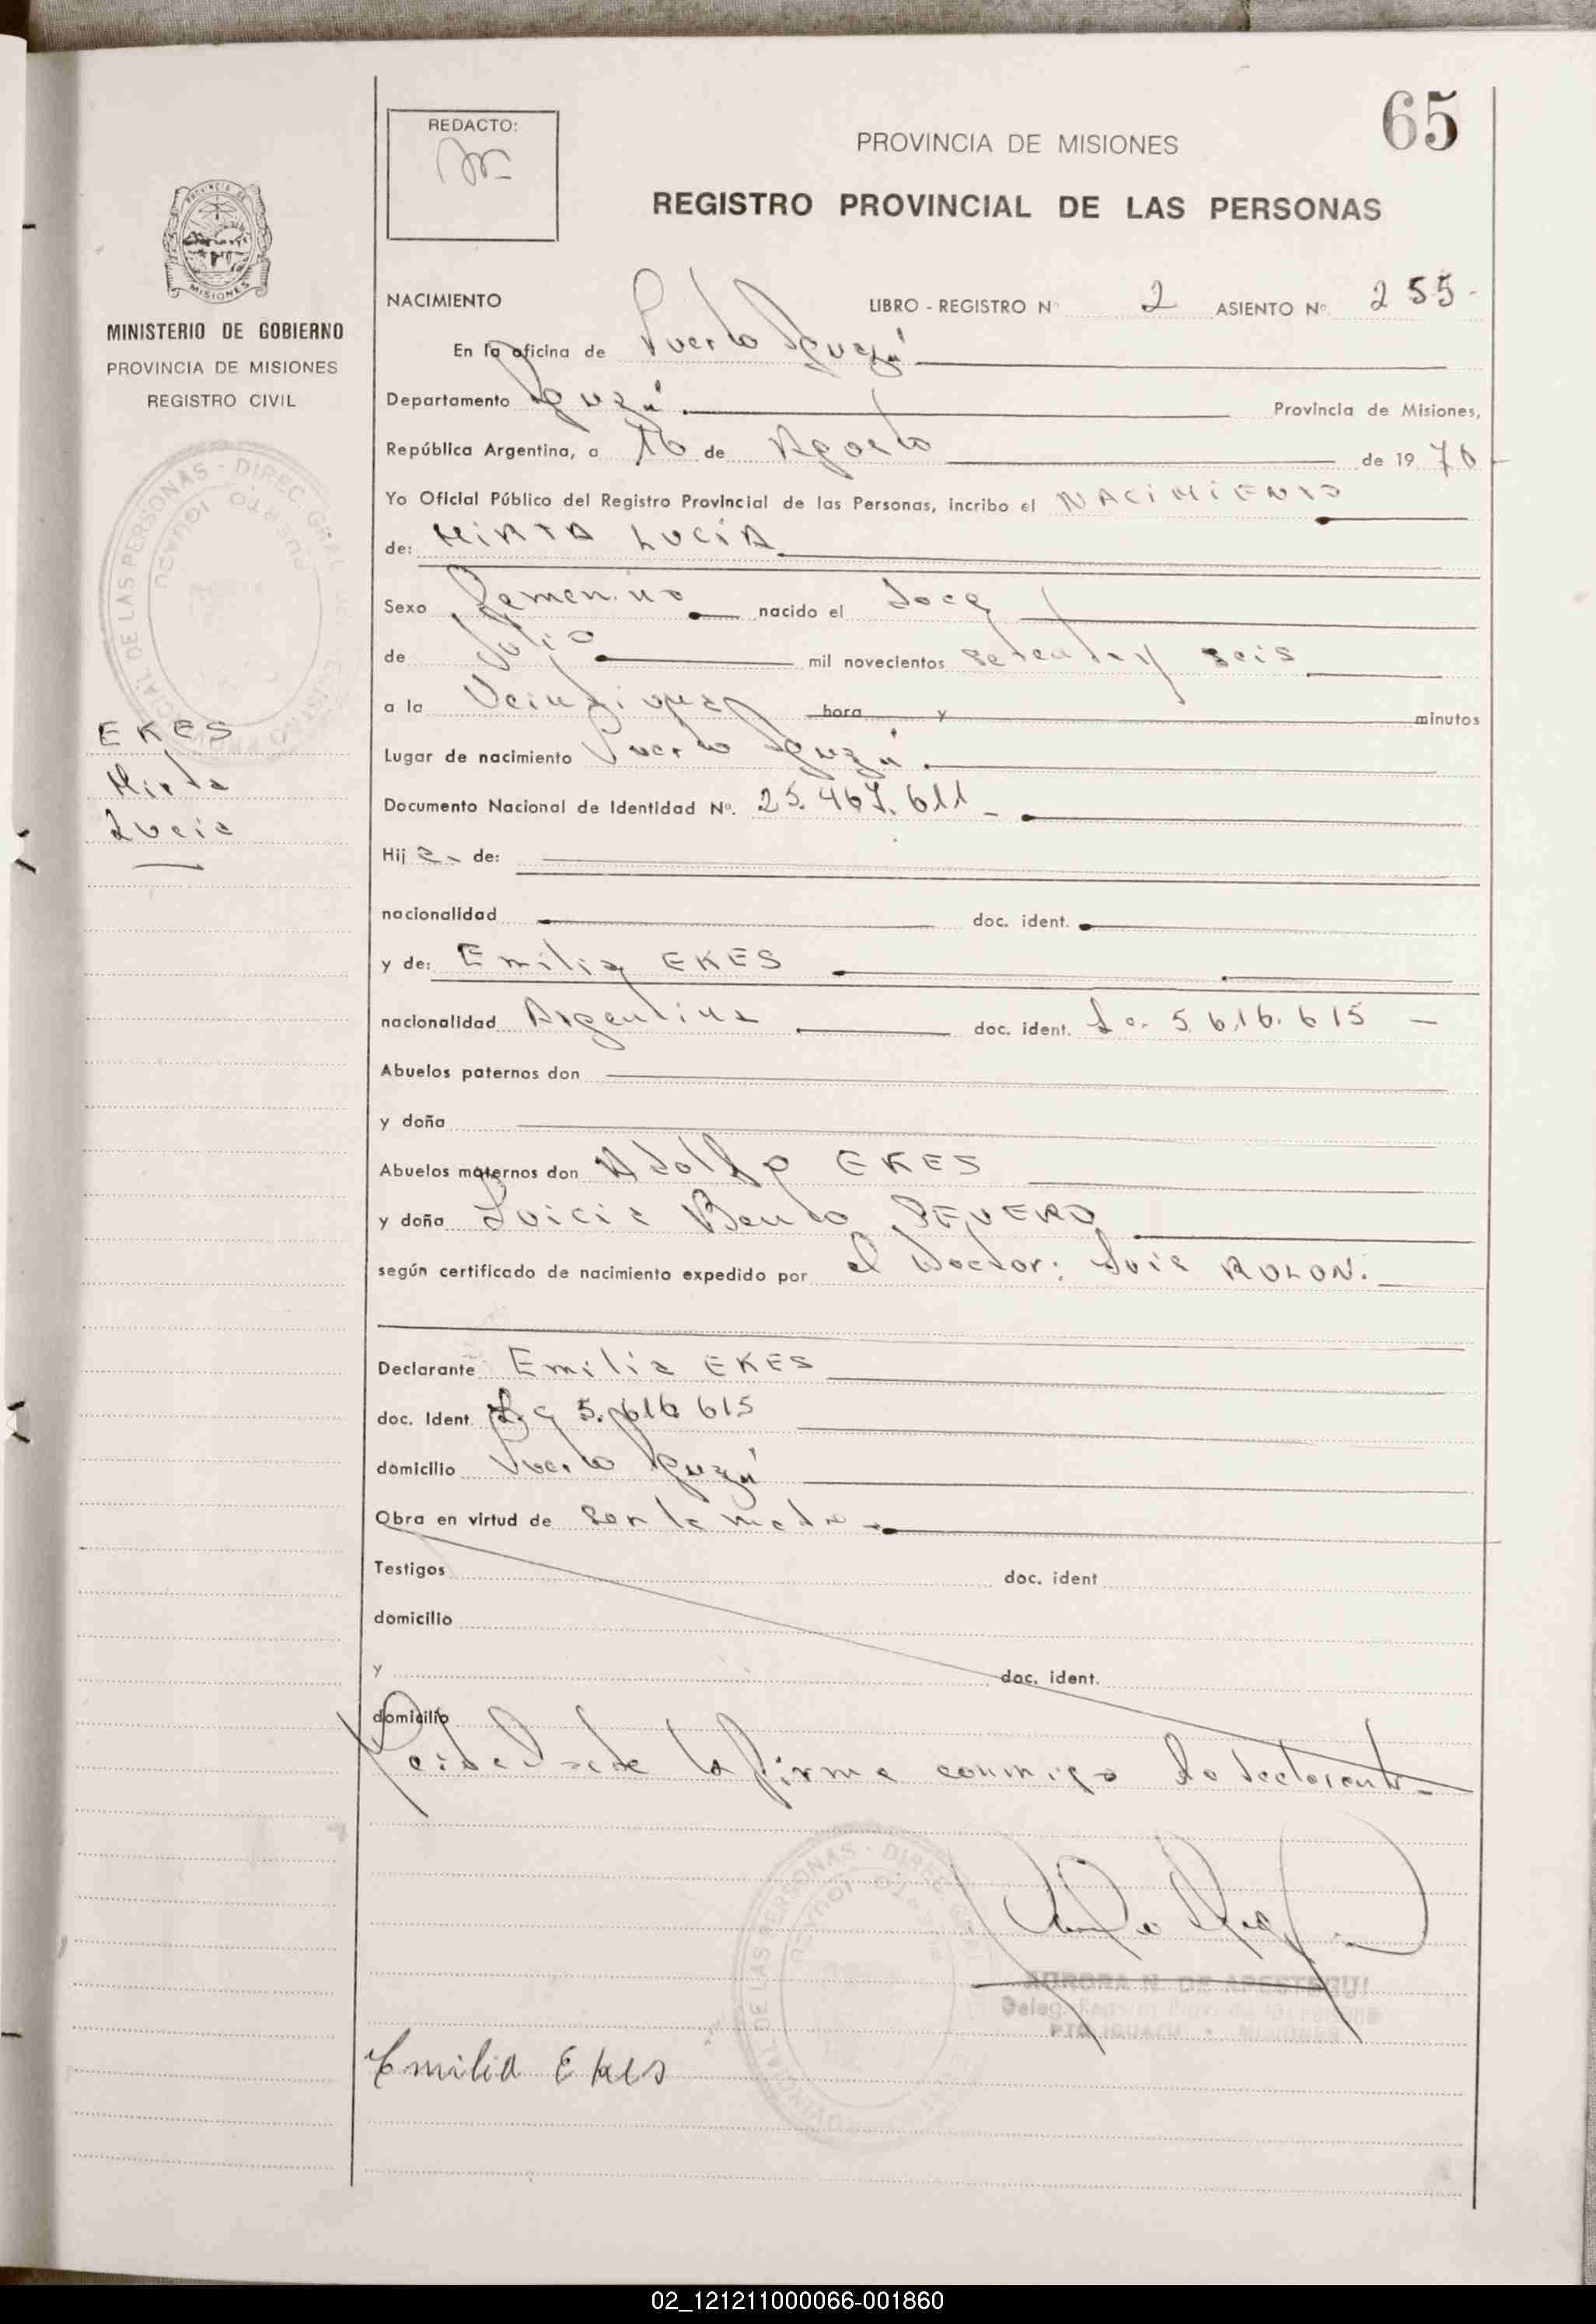 65
REDACTO:
PROVINCIA DE MISIONES
REGISTRO PROVINCIAL DE LAS PERSONAS
MINISTERIO DE GOBIERNO
PROVINCIA DE MISIONES
REGISTRO CIVIL
EKES
Mirta
Lucia
NACIMIENTO LIBRO - REGISTRO Nº 2 ASIENTO Nº 255-
En la oficina de Puerto Iguazú
Departamento Iguazú Provincia de Misiones,
República Argentina, a 16 de Agosto de 1976
Yo Oficial Público del Registro Provincial de las Personas, incribo el NACIMIENTO
de: MIRTA LUCIA
Sexo Femenino nacido el doce
de Julio mil novecientos setenta y seis
a la Veintiuna hora y minutos
Lugar de nacimiento Puerto Iguazú
Documento Nacional de Identidad Nº. 25.467.611-
Hija de:
nacionalidad doc. ident.
y de: Emilia EKES
nacionalidad Argentina doc. ident. Lc. 5.616.615 -
Abuelos paternos don
y doña
Abuelos maternos don Adolfo EKES
y doña Lucia Bento SEVERO
según certificado de nacimiento expedido por el Doctor: Luis ROLON.
Declarante Emilia EKES
doc. Ident. Lc 5.616.615
domicilio Puerto Iguazú
Obra en virtud de ser la madre
Testigos doc. ident
domicilio
y doc. ident.
domicilio
Leida el acta la firma conmigo la declarante
AURORA N. DE APESTEGUI
Deleg. Registro Prov. de las Personas
PTO IGUAZU - MISIONES
Emilia Ekes
02_121211000066-001860